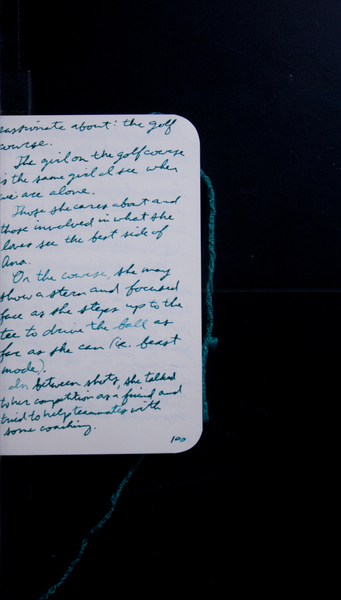 passionate about: the golf
course.
The girl on the golf course
is the same girl I see when
we are alone.
Those she cares about and
those involved in what she
loves see the best side of
Ana.
On the course, she may
show a stern and focused
face as she steps up to the
tee to drive the ball as
far as she can (i.e. beast
mode).
In between shots, she talked
to her competition as a friend and
tried to help teammates with
some coaching.
100